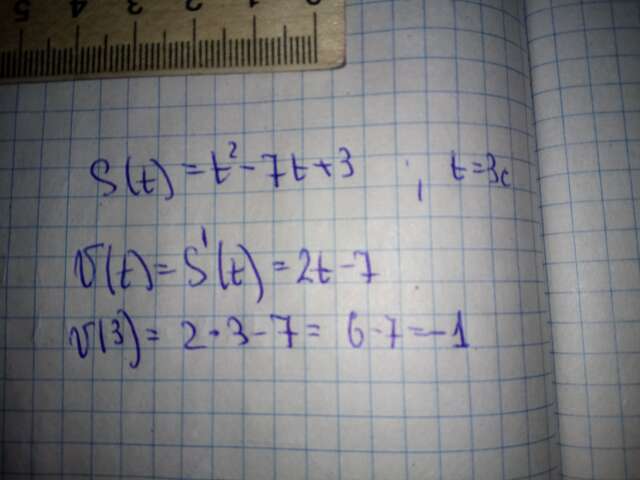 S(t) = t² - 7t + 3, t = 3c
v(t) = S'(t) = 2t - 7
v(3) = 2·3 - 7 = 6 - 7 = -1
5 4 3 2 1 0